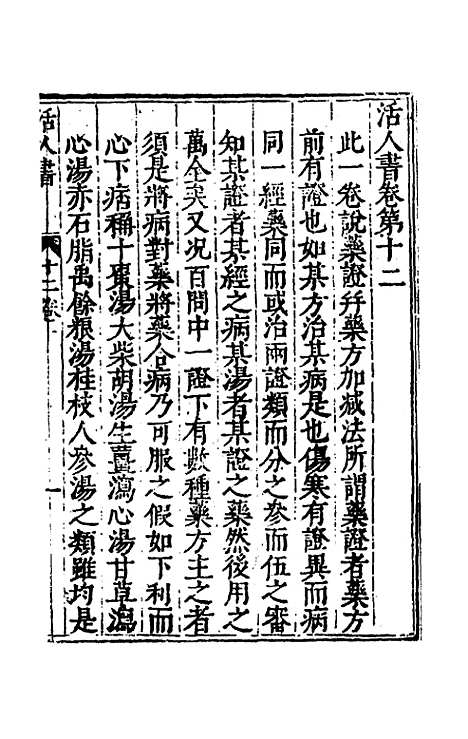 活人書卷第十二
此一卷說藥證并藥方加减法所謂藥證者藥方
前有證也如某方治某病是也傷寒有證異而病
同一經藥同而或治兩證類而分之參而伍之審
知某證者某經之病某湯者某證之藥然後用之
萬全矣又况百問中一證下有數種藥方主之者
須是將病對藥將藥合病乃可服之假如下利而
心下痞稱十棗湯大柴胡湯生薑瀉心湯甘草瀉
心湯赤石脂禹餘粮湯桂枝人參湯之類雖均是
活人書
十二卷
一